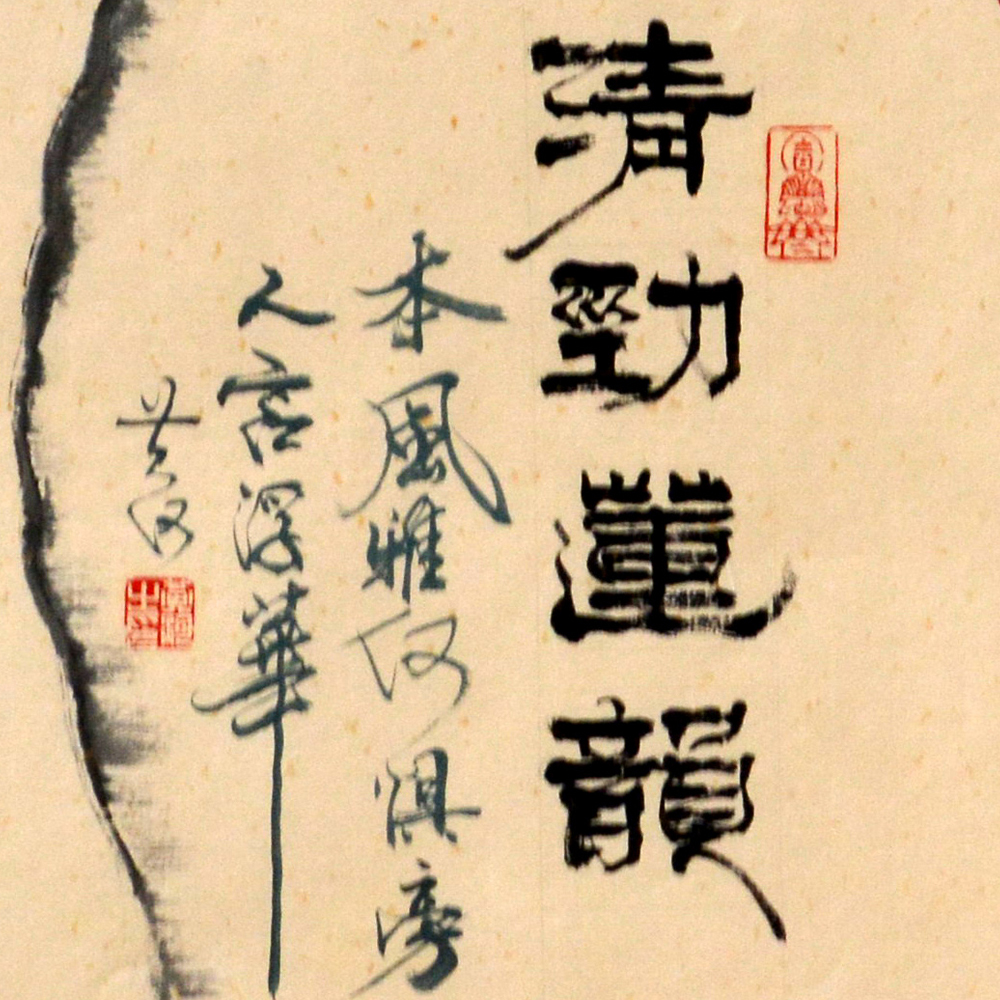 清勁蓮韻
本風雅何懼旁
人言浮華